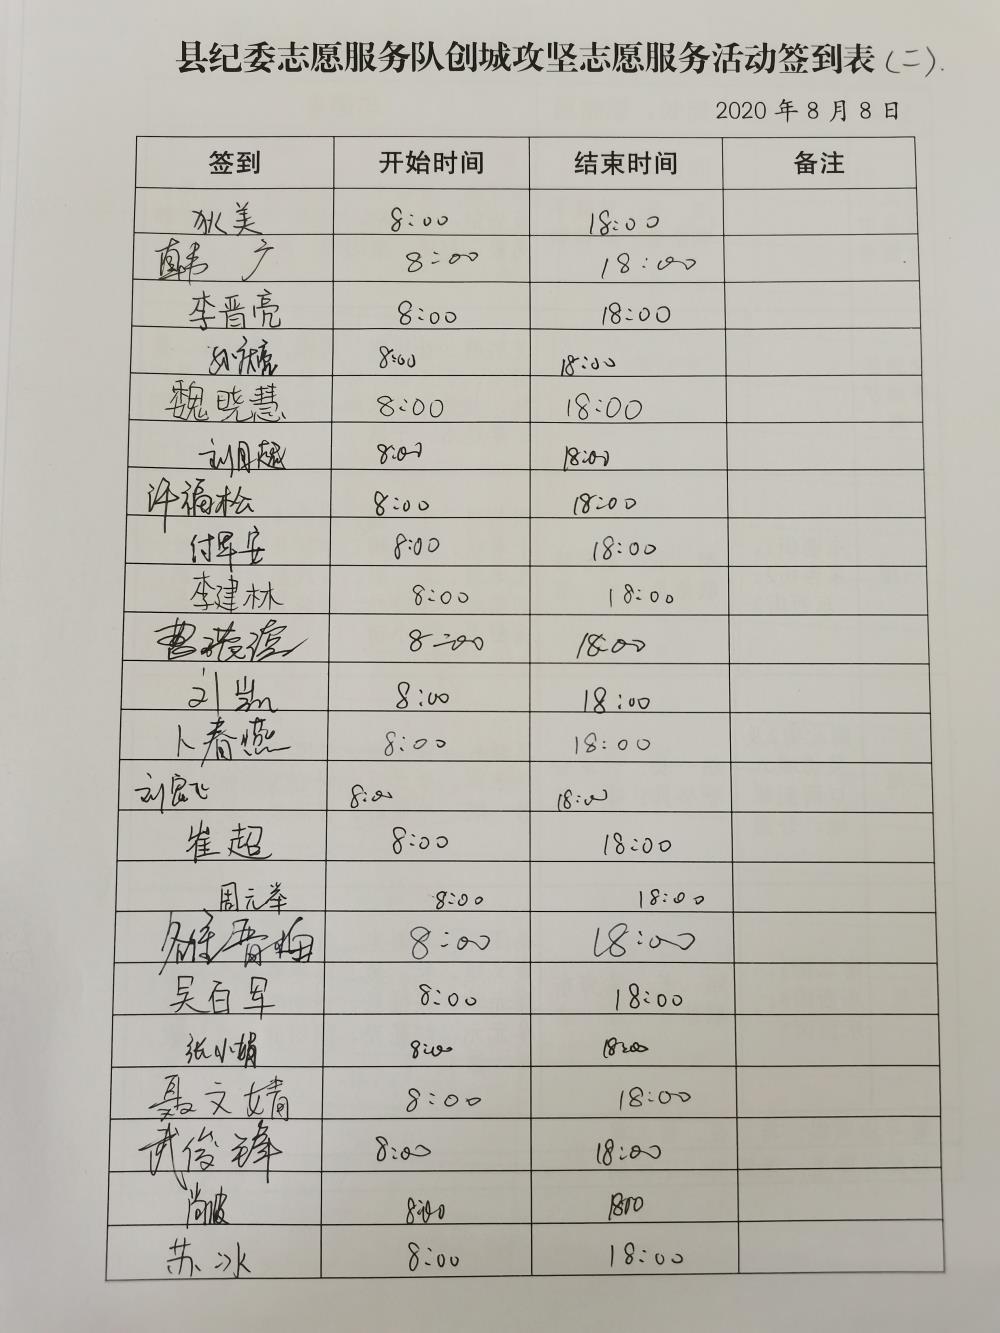 县纪委志愿服务队创城攻坚志愿服务活动签到表(二).
2020年8月8日
签到 开始时间 结束时间 备注
狄美 8:00 18:00
韩广 8:00 18:00
李晋亮 8:00 18:00
8:00 18:00
魏晓慧 8:00 18:00
刘月越 8:00 18:00
许福松 8:00 18:00
付军安 8:00 18:00
李建林 8:00 18:00
曹 8:00 18:00
刘凯 8:00 18:00
卜春燕 8:00 18:00
刘宏飞 8:00 18:00
崔超 8:00 18:00
周元举 8:00 18:00
8:00 18:00
吴百军 8:00 18:00
张小娟 8:00 18:00
聂文婧 8:00 18:00
武俊锋 8:00 18:00
尚波 8:00 18:00
苏冰 8:00 18:00